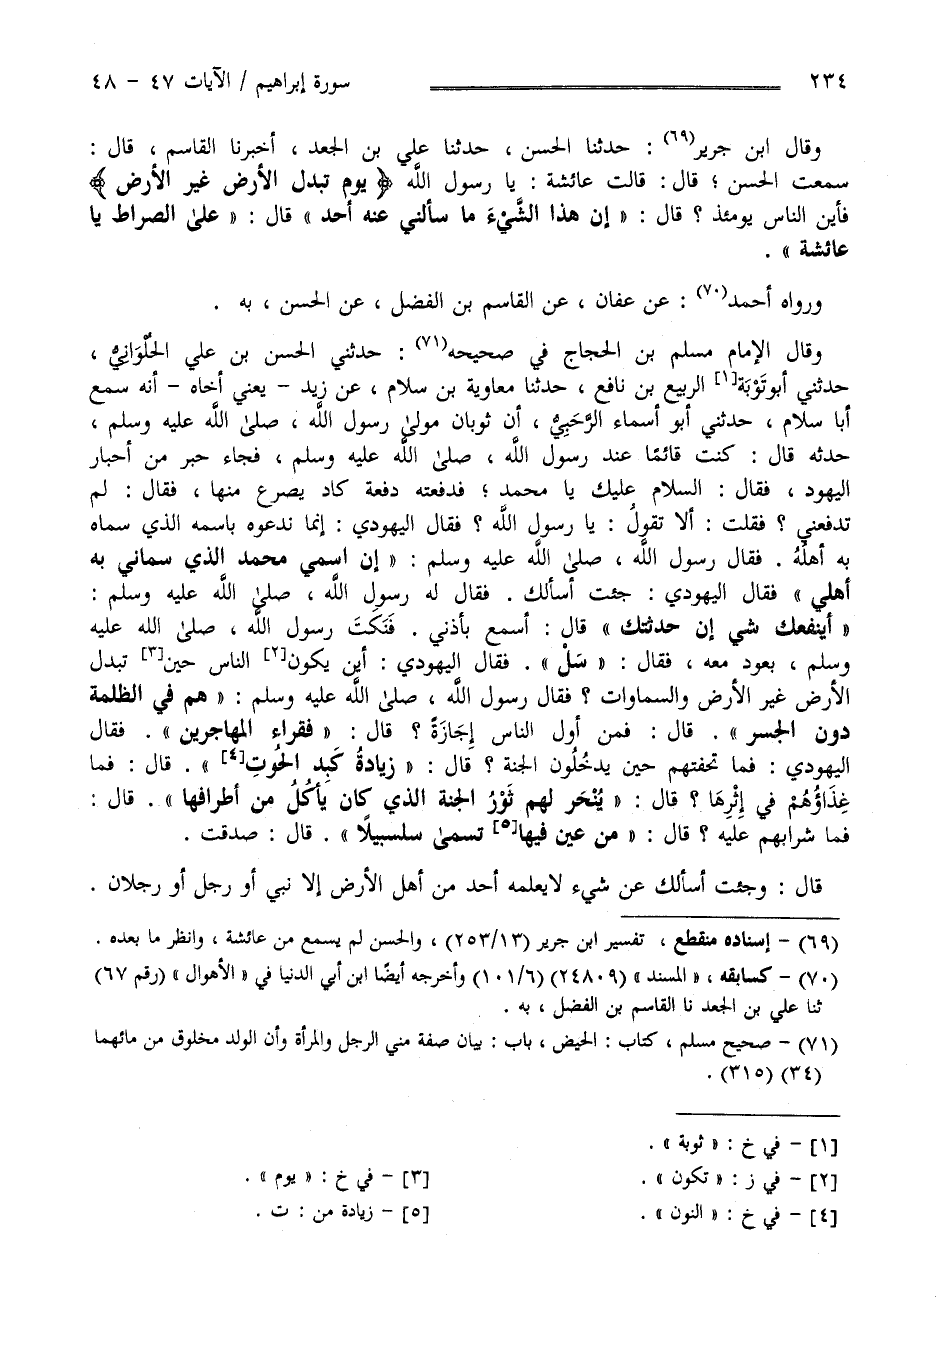 ٢٣٤ سورة إبراهيم / الآيات ٤٧ - ٤٨
وقال ابن جرير(٦٩) : حدثنا الحسن ، حدثنا علي بن الجعد ، أخبرنا القاسم ، قال :
سمعت الحسن ؛ قال : قالت عائشة : يا رسول اللَّه ﴿ يوم تبدل الأرض غير الأرض ﴾
فأين الناس يومئذ ؟ قال : « إن هذا الشَّيْءَ ما سألني عنه أحد » قال : « علىٰ الصراط يا
عائشة » .
ورواه أحمد(٧٠) : عن عفان ، عن القاسم بن الفضل ، عن الحسن ، به .
وقال الإمام مسلم بن الحجاج في صحيحه(٧١) : حدثني الحسن بن علي الحُلْوَانِيُّ ،
حدثني أبوتَوْبَة[١] الربيع بن نافع ، حدثنا معاوية بن سلام ، عن زيد – يعني أخاه – أنه سمع
أبا سلام ، حدثني أبو أسماء الرَّحَبِيُّ ، أن ثوبان مولىٰ رسول اللَّه ، صلىٰ اللَّه عليه وسلم ،
حدثه قال : كنت قائمًا عند رسول اللَّه ، صلىٰ اللَّه عليه وسلم ، فجاء حبر من أحبار
اليهود ، فقال : السلام عليك يا محمد ؛ فدفعته دفعة كاد يصرع منها ، فقال : لم
تدفعني ؟ فقلت : ألا تقولُ : يا رسول اللَّه ؟ فقال اليهودي : إنما ندعوه باسمه الذي سماه
به أهلُهُ . فقال رسول اللَّه ، صلىٰ اللَّه عليه وسلم : « إن اسمي محمد الذي سماني به
أهلي » فقال اليهودي : جئت أسألك . فقال له رسول اللَّه ، صلىٰ اللَّه عليه وسلم :
« أينفعك شي إن حدثتك » قال : أسمع بأذني . فَنَكَتَ رسول اللَّه ، صلىٰ الله عليه
وسلم ، بعود معه ، فقال : « سَلْ » . فقال اليهودي : أين يكون[٢] الناس حين[٣] تبدل
الأرض غير الأرض والسماوات ؟ فقال رسول اللَّه ، صلىٰ اللَّه عليه وسلم : « هم في الظلمة
دون الجسر » . قال : فمن أول الناس إِجَازَةً ؟ قال : « فقراء المهاجرين » . فقال
اليهودي : فما تحفتهم حين يدخُلُون الجنة ؟ قال : « زيادةُ كَبِد الحُوتِ[٤] » . قال : فما
غِذَاؤُهُمْ في إِثْرِهَا ؟ قال : « يُنْحَر لهم ثَوْرُ الجنة الذي كان يأكُلُ من أطرافها » . قال :
فما شرابهم عليه ؟ قال : « من عين فيها[٥] تسمىٰ سلسبيلًا » . قال : صدقت .
قال : وجئت أسألك عن شيء لايعلمه أحد من أهل الأرض إلا نبي أو رجل أو رجلان .
(٦٩) – إسناده منقطع ، تفسير ابن جرير (٢٥٣/١٣) ، والحسن لم يسمع من عائشة ، وانظر ما بعده .
(٧٠) – كسابقه ، « المسند » (٢٤٨٠٩) (١٠١/٦) وأخرجه أيضًا ابن أبي الدنيا في « الأهوال » (رقم ٦٧)
ثنا علي بن الجعد نا القاسم بن الفضل ، به .
(٧١) – صحيح مسلم ، كتاب : الحيض ، باب : بيان صفة مني الرجل والمرأة وأن الولد مخلوق من مائهما
(٣٤) (٣١٥) .
[١] – في خ : « ثوبة » .
[٢] – في ز : « تكون » . [٣] – في خ : « يوم » .
[٤] – في خ : « النون » . [٥] – زيادة من : ت .